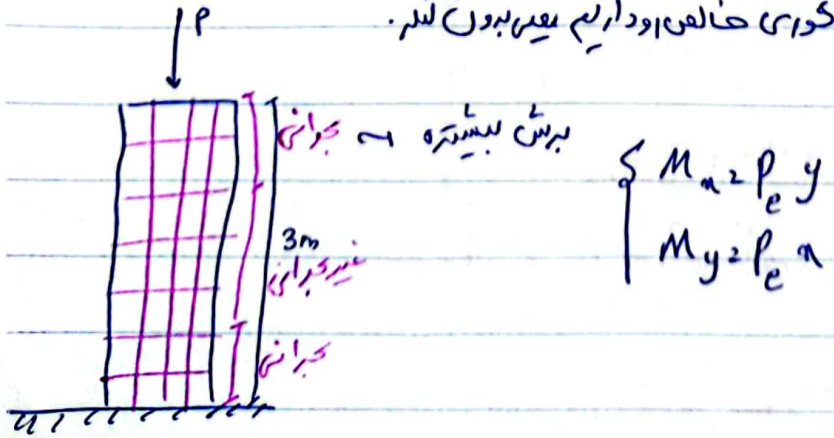 محوری خالص رو داریم یعنی بدون لنگر.
P
بحرانی ← برش بیشتره
3m
غیر بحرانی
بحرانی
Mx = Pe y
My = Pe x